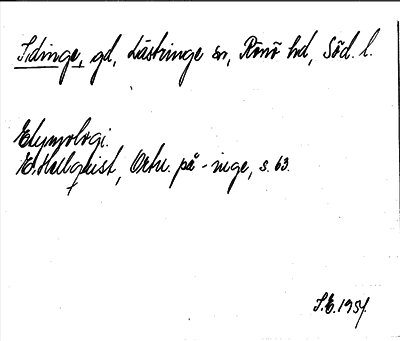 Sidinge, gd, Lästringe sn, Rönö hd, Söd. l.
Etymologi.
E. Hellquist, Ortn. på -inge, s. 63.
S.E. 1954.